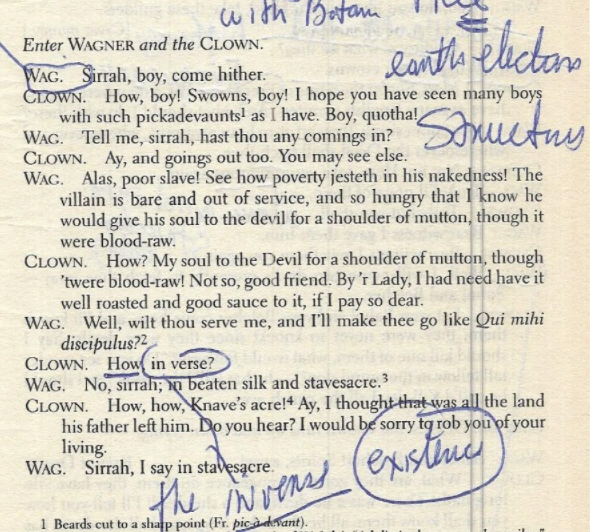 with
Enter WAGNER and the CLOWN.
earth's electrons
WAG. Sirrah, boy, come hither.
CLOWN. How, boy! Swowns, boy! I hope you have seen many boys
with such pickadevaunts¹ as I have. Boy, quotha!
WAG. Tell me, sirrah, hast thou any comings in?
CLOWN. Ay, and goings out too. You may see else.
WAG. Alas, poor slave! See how poverty jesteth in his nakedness! The
villain is bare and out of service, and so hungry that I know he
would give his soul to the devil for a shoulder of mutton, though it
were blood-raw.
CLOWN. How? My soul to the Devil for a shoulder of mutton, though
'twere blood-raw! Not so, good friend. By 'r Lady, I had need have it
well roasted and good sauce to it, if I pay so dear.
WAG. Well, wilt thou serve me, and I'll make thee go like Qui mihi
discipulus?²
CLOWN. How, in verse?
WAG. No, sirrah; in beaten silk and stavesacre.³
CLOWN. How, how, Knave's acre!⁴ Ay, I thought that was all the land
his father left him. Do you hear? I would be sorry to rob you of your
living.
WAG. Sirrah, I say in stavesacre.
existence
the inverse
1 Beards cut to a sharp point (Fr. pic-à-devant).